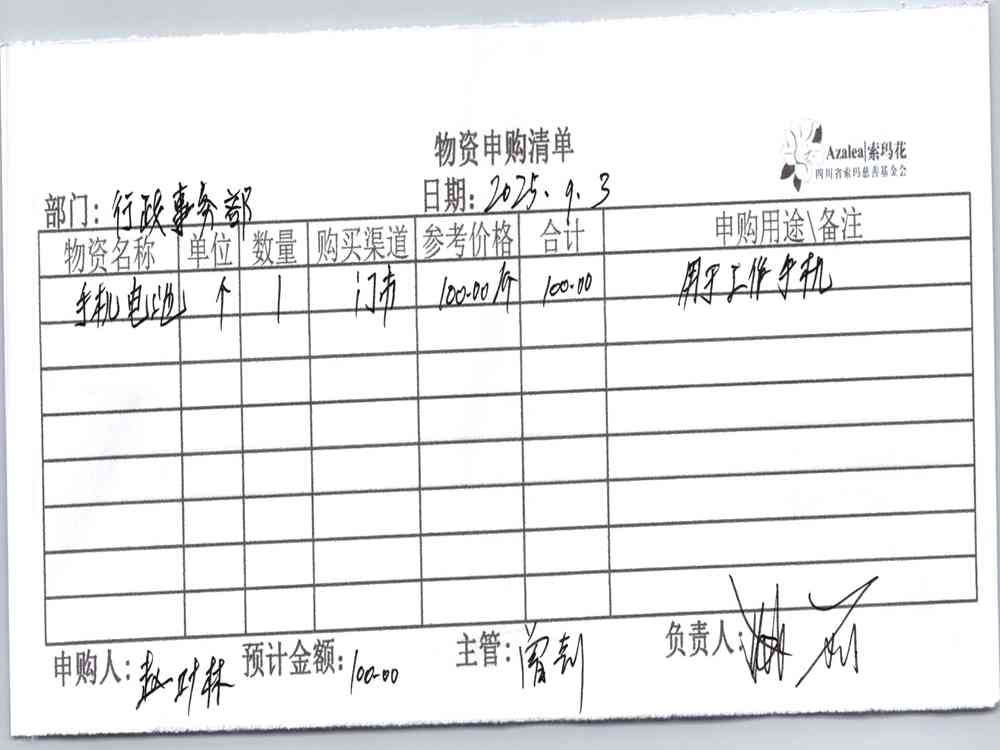 物资申购清单
Azalea|索玛花
四川省索玛慈善基金会
部门：行政事务部 日期：2025.9.3
物资名称 单位 数量 购买渠道 参考价格 合计 申购用途\备注
手机电池 个 1 门市 100.00/个 100.00 用于工作手机
申购人：赵 林 预计金额：100.00 主管：曾 负责人：